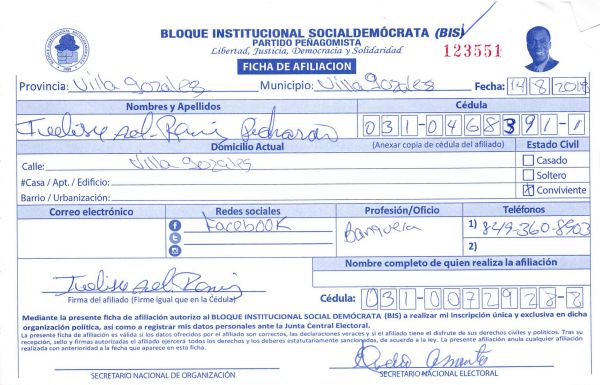 BLOQUE INSTITUCIONAL SOCIALDEMÓCRATA (BIS)
PARTIDO PEÑAGOMISTA
Libertad, Justicia, Democracia y Solidaridad
123551
FICHA DE AFILIACION
Provincia: Villa gozalez Municipio: Villa gozalez Fecha: 14/8/2018
Nombres y Apellidos Cédula
031-0468391-1
Domicilio Actual (Anexar copia de cédula del afiliado) Estado Civil
Calle: Villa gozales
Casado
#Casa / Apt. / Edificio:
Soltero
Barrio / Urbanización:
Conviviente
Correo electrónico Redes sociales Profesión/Oficio Teléfonos
Facebook Banquera 1) 849-360-8903
2)
Nombre completo de quien realiza la afiliación
Firma del afiliado (Firme igual que en la Cédula)
Cédula: 031-0072928-2
Mediante la presente ficha de afiliación autorizo al BLOQUE INSTITUCIONAL SOCIAL DEMÓCRATA (BIS) a realizar mi inscripción única y exclusiva en dicha
organización política, así como a registrar mis datos personales ante la Junta Central Electoral.
La presente ficha de afiliación es válida si los datos ofrecidos por el afiliado son correctos, las declaraciones veraces y si el afiliado tiene el disfrute de sus derechos civiles y políticos. Tras su
recepción, sello y firmas autorizadas el afiliado ejercerá todos los derechos y los deberes estatutariamente sancionados, de acuerdo a la ley. La presente afiliación anula cualquier afiliación
realizada con anterioridad a la fecha que aparece en esta ficha.
SECRETARIO NACIONAL DE ORGANIZACIÓN SECRETARIO NACIONAL ELECTORAL